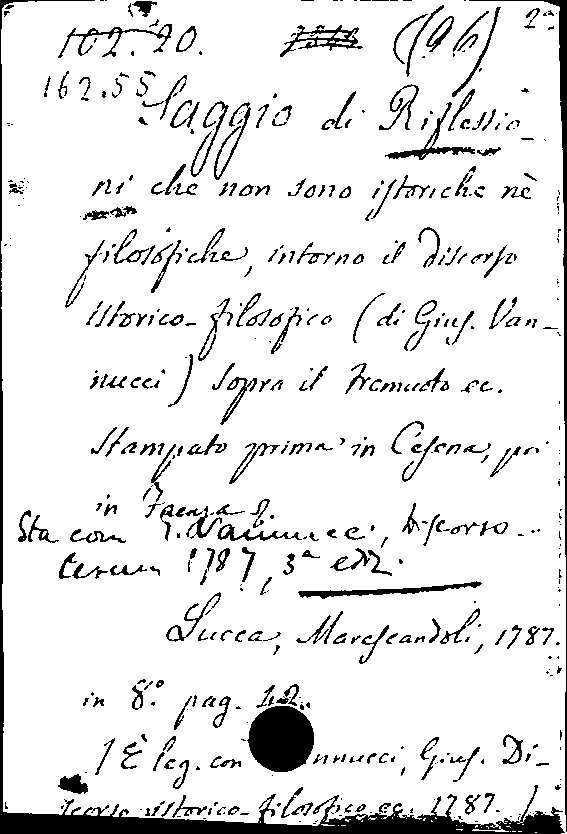 102.20. (96) 2ª
162.55
Saggio di Riflessio-
ni che non sono istoriche nè
filosofiche, intorno il discorso
istorico-filosofico (di Gius. Van-
nucci) sopra il tremuoto ec.
Stampato prima in Cesena, poi
in Faenza
Sta con G. Vannucci, Discorso...
Cesena 1787, 3ª ediz.
Lucca, Marescandoli, 1787.
in 8.º pag. 12.
[È leg. con nnucci, Gius. Di-
scorso istorico-filosofico ec. 1787.]